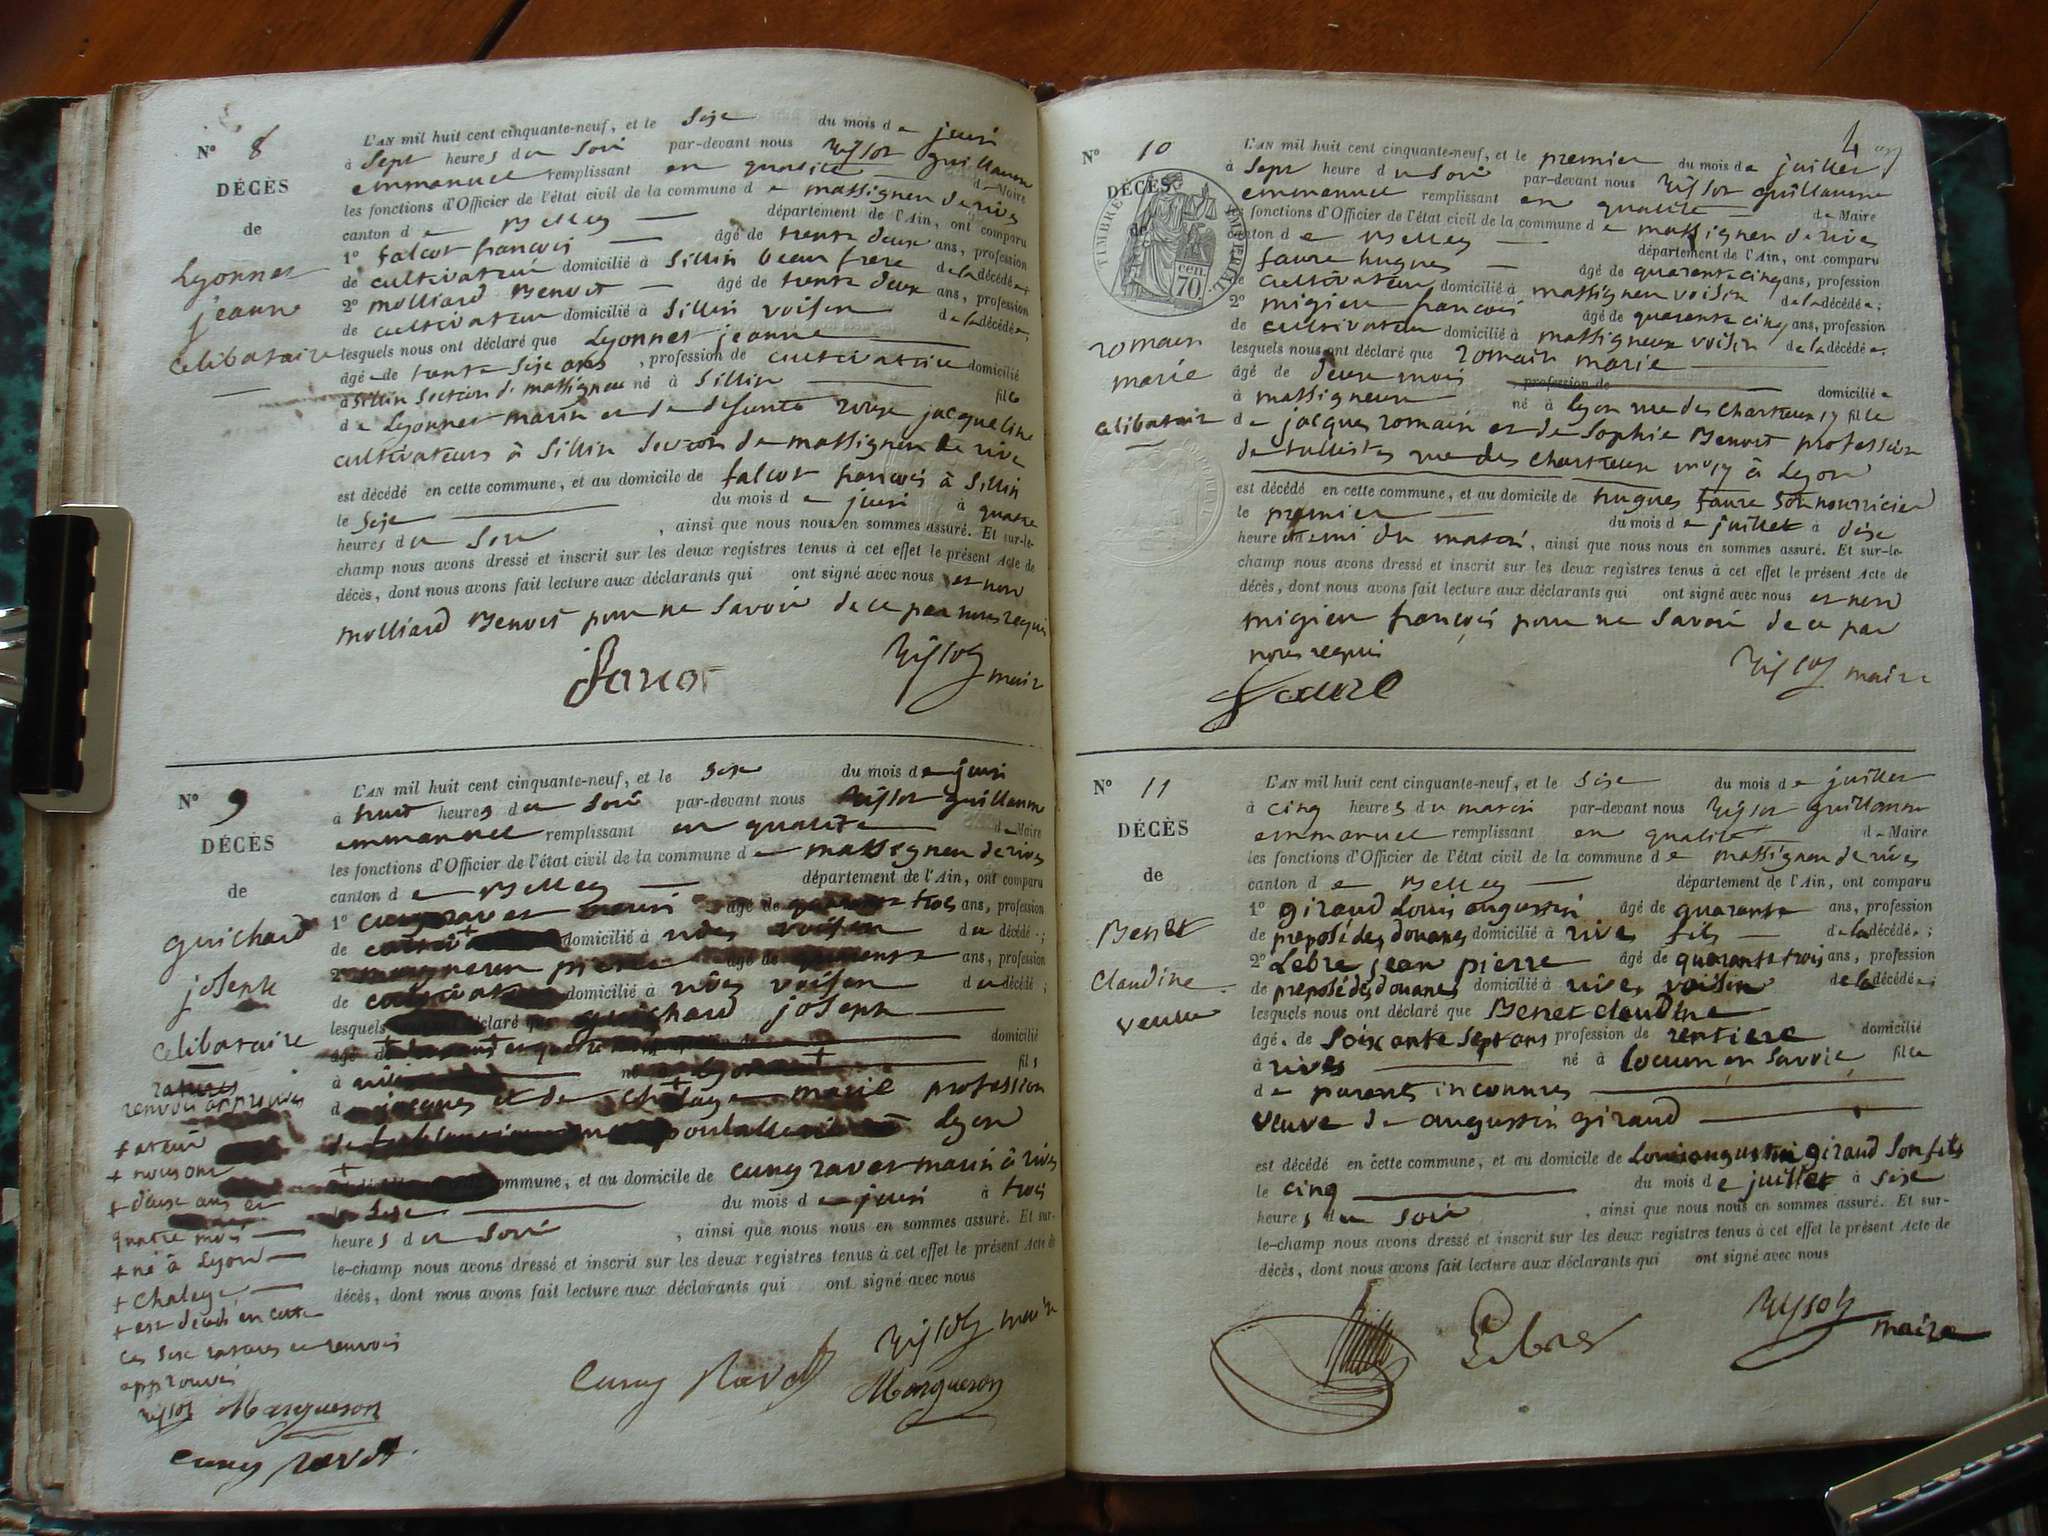 Nº 8
DÉCÈS
de
Lyonnet
jeanne
celibataire
L'AN mil huit cent cinquante-neuf, et le sixe du mois de juin
à sept heures du soir par-devant nous guillaume
emmanuel remplissant en qualité de Maire
les fonctions d'Officier de l'état civil de la commune de massignieu de rives
canton de Belley département de l'Ain, ont comparu
1º falcot françois âgé de trente deux ans, profession
de cultivateur domicilié à Sillin beau frere de la décédée
2º molliard Benoit âgé de trente deux ans, profession
de cultivateur domicilié à Sillin voisin de la décédée
lesquels nous ont déclaré que Lyonnet jeanne
âgée de trente sixe ans, profession de cultivatrice domicilié
à Sillin section de massignieu né à Sillin fille
de Lyonnet marin et de defunte jacqueline
cultivateurs à Sillin section de massignieu de rive
est décédé en cette commune, et au domicile de falcot françois à Sillin
le sixe du mois de juin à quatre
heures du soir, ainsi que nous nous en sommes assuré. Et sur-le-
champ nous avons dressé et inscrit sur les deux registres tenus à cet effet le présent Acte de
décès, dont nous avons fait lecture aux déclarants qui ont signé avec nous et non
molliard Benoit pour ne savoir de ce par nous requis
maire
Nº 9
DÉCÈS
de
guichard
joseph
celibataire
renvois approuvés
+ ateur
+ nous ont
+ deux ans et
quatre mois
+ né à Lyon
+ Chaleye
+ est décédé en cette
ces sixe ratures et renvois
approuvés
Margueron
Cuny ravet
L'AN mil huit cent cinquante-neuf, et le sixe du mois de juin
à huit heures du soir par-devant nous guillaume
emmanuel remplissant en qualité de Maire
les fonctions d'Officier de l'état civil de la commune de massignieu de rives
canton de Belley département de l'Ain, ont comparu
1º cuny ravet marin âgé de trois ans, profession
de domicilié à rives voisin du décédé;
2º margueron pierre âgé de ans, profession
de domicilié à rives voisin du décédé;
lesquels déclaré que guichard joseph
domicilié
à né à fils
de jacques et de marie profession
Lyon
commune, et au domicile de cuny ravet marin à rives
le sixe du mois de juin à trois
heures du soir, ainsi que nous nous en sommes assuré. Et sur-
le-champ nous avons dressé et inscrit sur les deux registres tenus à cet effet le présent Acte de
décès, dont nous avons fait lecture aux déclarants qui ont signé avec nous
maire
Cuny Ravet Margueron
4
Nº 10
DÉCÈS
de
TIMBRE IMPERIAL
70 cen.
romain
marie
celibatair
L'AN mil huit cent cinquante-neuf, et le premier du mois de juillet
à sept heure du soir par-devant nous guillaume
emmanuel remplissant en qualité de Maire
les fonctions d'Officier de l'état civil de la commune de massignieu de rives
canton de Belley département de l'Ain, ont comparu
faure hugues âgé de quarante cinq ans, profession
de cultivateur domicilié à massignieu voisin de la décédée;
2º migieu françois âgé de quarante cinq ans, profession
de cultivateur domicilié à massignieux voisin de la décédée.
lesquels nous ont déclaré que romain marie
âgé de deux mois, profession de domiciliée
à massignieu né à Lyon rue des chartreux 17 fille
de jacques romain et de Sophie Benoit profession
de tullistes rue des chartreux nº 17 à Lyon
est décédé en cette commune, et au domicile de hugues faure son nourricier
le premier du mois de juillet à dixe
heure demi du matin, ainsi que nous nous en sommes assuré. Et sur-le-
champ nous avons dressé et inscrit sur les deux registres tenus à cet effet le présent Acte de
décès, dont nous avons fait lecture aux déclarants qui ont signé avec nous et non
migieu françois pour ne savoir de ce par
nous requis
Faure maire
Nº 11
DÉCÈS
de
Benet
Claudine
veuve
L'AN mil huit cent cinquante-neuf, et le sixe du mois de juillet
à cinq heures du matin par-devant nous guillaume
emmanuel remplissant en qualité de Maire
les fonctions d'Officier de l'état civil de la commune de massignieu de rives
canton de Belley département de l'Ain, ont comparu
1º giraud Louis augustin âgé de quarante ans, profession
de preposé des douanes domicilié à rives fils de la décédée;
2º Lebre jean pierre âgé de quarante trois ans, profession
de preposé des douanes domicilié à rives voisin de la décédée;
lesquels nous ont déclaré que Benet claudine
âgée de soixante sept ans profession de rentiere domicilié
à rives né à locum en Savoie fille
de parents inconnues
veuve de augustin giraud
est décédé en cette commune, et au domicile de Louis augustin giraud son fils
le cinq du mois de juillet à sixe
heures du soir, ainsi que nous nous en sommes assuré. Et sur-
le-champ nous avons dressé et inscrit sur les deux registres tenus à cet effet le présent Acte de
décès, dont nous avons fait lecture aux déclarants qui ont signé avec nous
Lebre maire